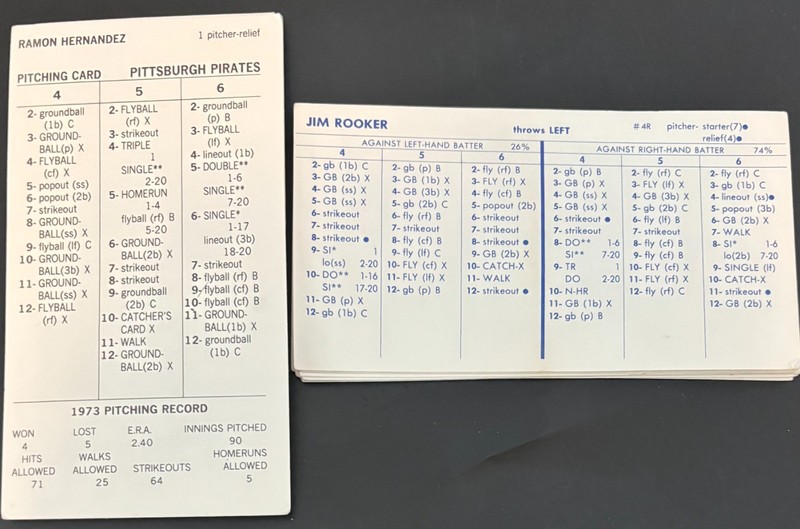 RAMON HERNANDEZ 1 pitcher-relief
PITCHING CARD PITTSBURGH PIRATES
4 5 6
2- groundball
(1b) C
3- GROUND-
BALL(p) X
4- FLYBALL
(cf) X
5- popout (ss)
6- popout (2b)
7- strikeout
8- GROUND-
BALL(ss) X
9- flyball (lf) C
10- GROUND-
BALL(3b) X
11- GROUND-
BALL(ss) X
12- FLYBALL
(rf) X
2- FLYBALL
(rf) X
3- strikeout
4- TRIPLE
1
SINGLE**
2-20
5- HOMERUN
1-4
flyball (rf) B
5-20
6- GROUND-
BALL(2b) X
7- strikeout
8- strikeout
9- groundball
(2b) C
10- CATCHER'S
CARD X
11- WALK
12- GROUND-
BALL(2b) X
2- groundball
(p) B
3- FLYBALL
(lf) X
4- lineout (1b)
5- DOUBLE**
1-6
SINGLE**
7-20
6- SINGLE*
1-17
lineout (3b)
18-20
7- strikeout
8- flyball (rf) B
9- flyball (cf) B
10- flyball (cf) B
11- GROUND-
BALL(1b) X
12- groundball
(1b) C
1973 PITCHING RECORD
WON LOST E.R.A. INNINGS PITCHED
4 5 2.40 90
HITS ALLOWED WALKS ALLOWED STRIKEOUTS HOMERUNS ALLOWED
71 25 64 5
JIM ROOKER throws LEFT # 4R pitcher- starter(7)●
relief(4)●
AGAINST LEFT-HAND BATTER 26%
4 5 6
2- gb (1b) C
3- GB (2b) X
4- GB (ss) X
5- GB (ss) X
6- strikeout
7- strikeout
8- strikeout ●
9- SI* 1
lo(ss) 2-20
10- DO** 1-16
SI** 17-20
11- GB (p) X
12- gb (1b) C
2- gb (p) B
3- GB (1b) X
4- GB (3b) X
5- gb (2b) C
6- fly (rf) B
7- strikeout
8- fly (cf) B
9- fly (lf) C
10- FLY (cf) X
11- FLY (lf) X
12- gb (p) B
2- fly (rf) B
3- FLY (rf) X
4- fly (cf) B
5- popout (2b)
6- strikeout
7- strikeout
8- strikeout ●
9- GB (2b) X
10- CATCH-X
11- WALK
12- strikeout ●
AGAINST RIGHT-HAND BATTER 74%
4 5 6
2- gb (p) B
3- GB (p) X
4- GB (ss) X
5- GB (ss) X
6- strikeout ●
7- strikeout
8- DO** 1-6
SI** 7-20
9- TR 1
DO 2-20
10- N-HR
11- GB (1b) X
12- gb (p) B
2- fly (rf) C
3- FLY (lf) X
4- GB (3b) X
5- gb (2b) C
6- fly (lf) B
7- strikeout
8- fly (cf) B
9- fly (cf) B
10- FLY (cf) X
11- FLY (rf) X
12- fly (rf) C
2- fly (rf) C
3- gb (1b) C
4- lineout (ss)●
5- popout (3b)
6- GB (2b) X
7- WALK
8- SI* 1-6
lo(2b) 7-20
9- SINGLE (lf)
10- CATCH-X
11- strikeout ●
12- GB (2b) X